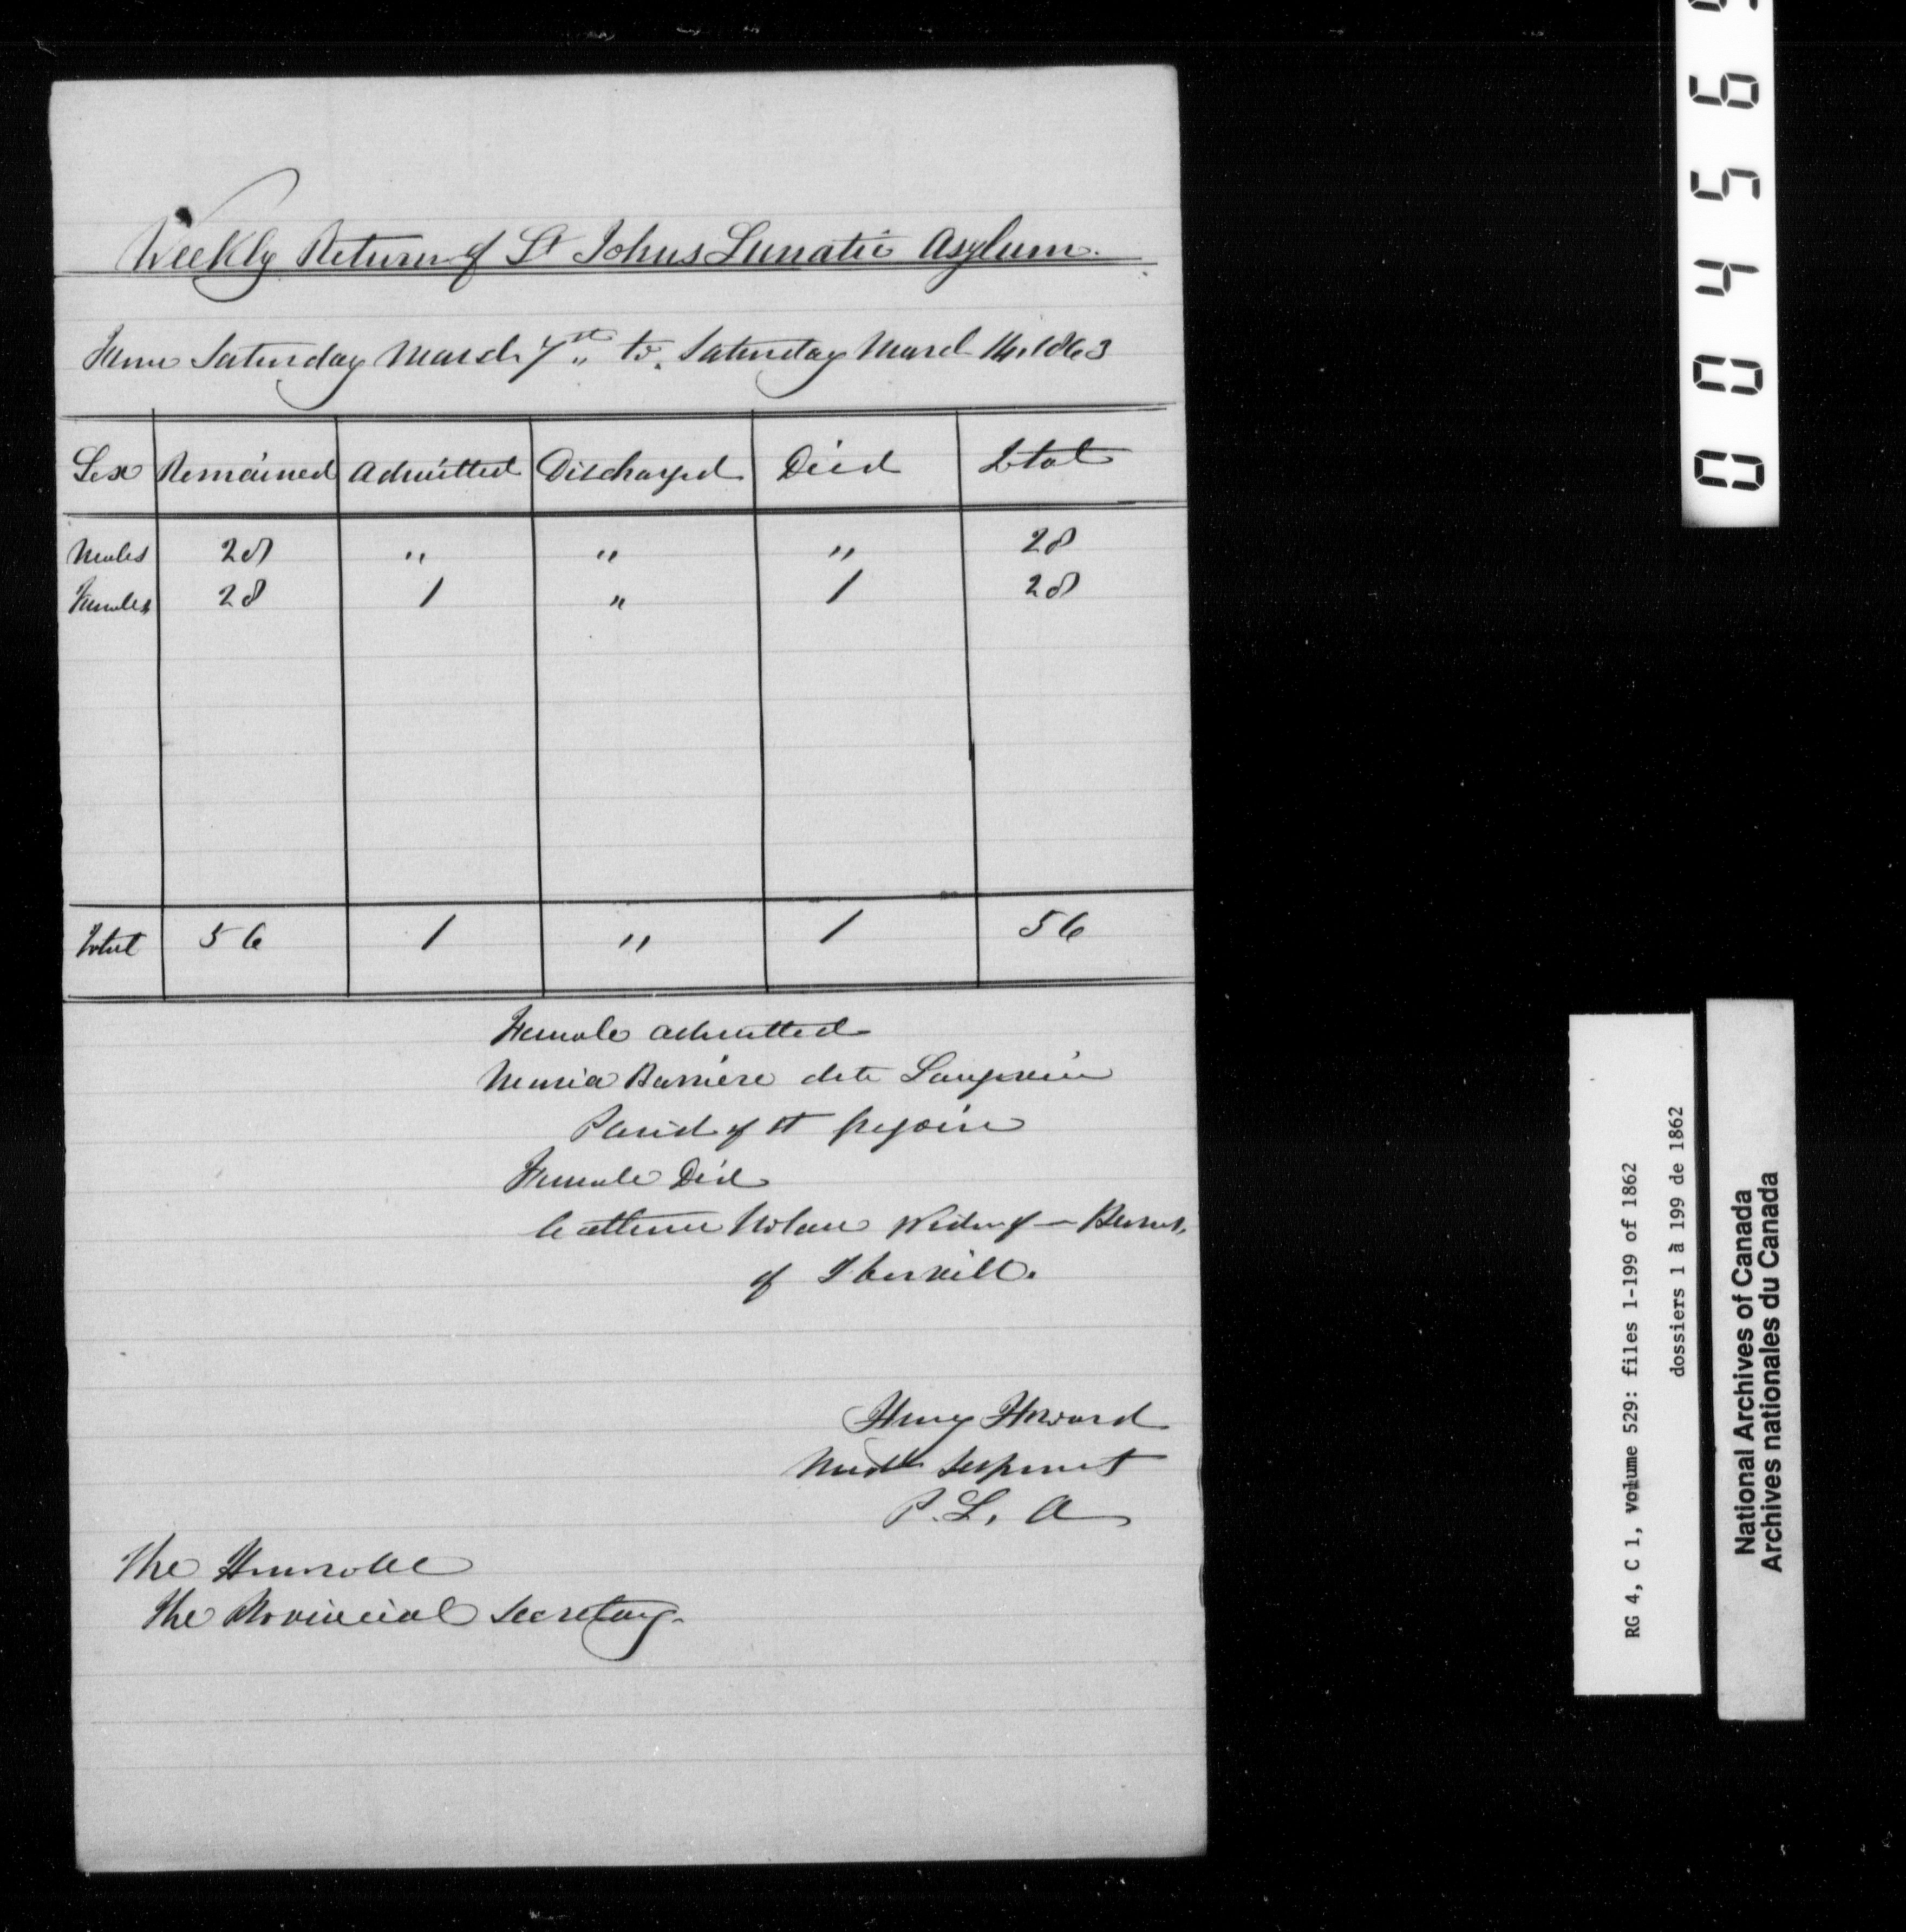 Weekly Return of St Johns Lunatic Asylum.
From Saturday March 7th „ to. Saturday March 14. 1863
Sex Remained Admitted Discharged Died Total
Males 28 " " " 28
Females 28 1 " 1 28
Total 56 1 " 1 56
Female admitted
Maria Barriere dite Langevin
Parish of St Gregoire
Female Died
Catherine Nolan Widow of — Burns,
of Iberville.
Henry Howard
Medl Suprint
P. L. A
The Honorable
The Provincial Secretary.
0 0 4 5 6
RG 4, C 1, volume 529: files 1-199 of 1862
dossiers 1 à 199 de 1862
National Archives of Canada
Archives nationales du Canada